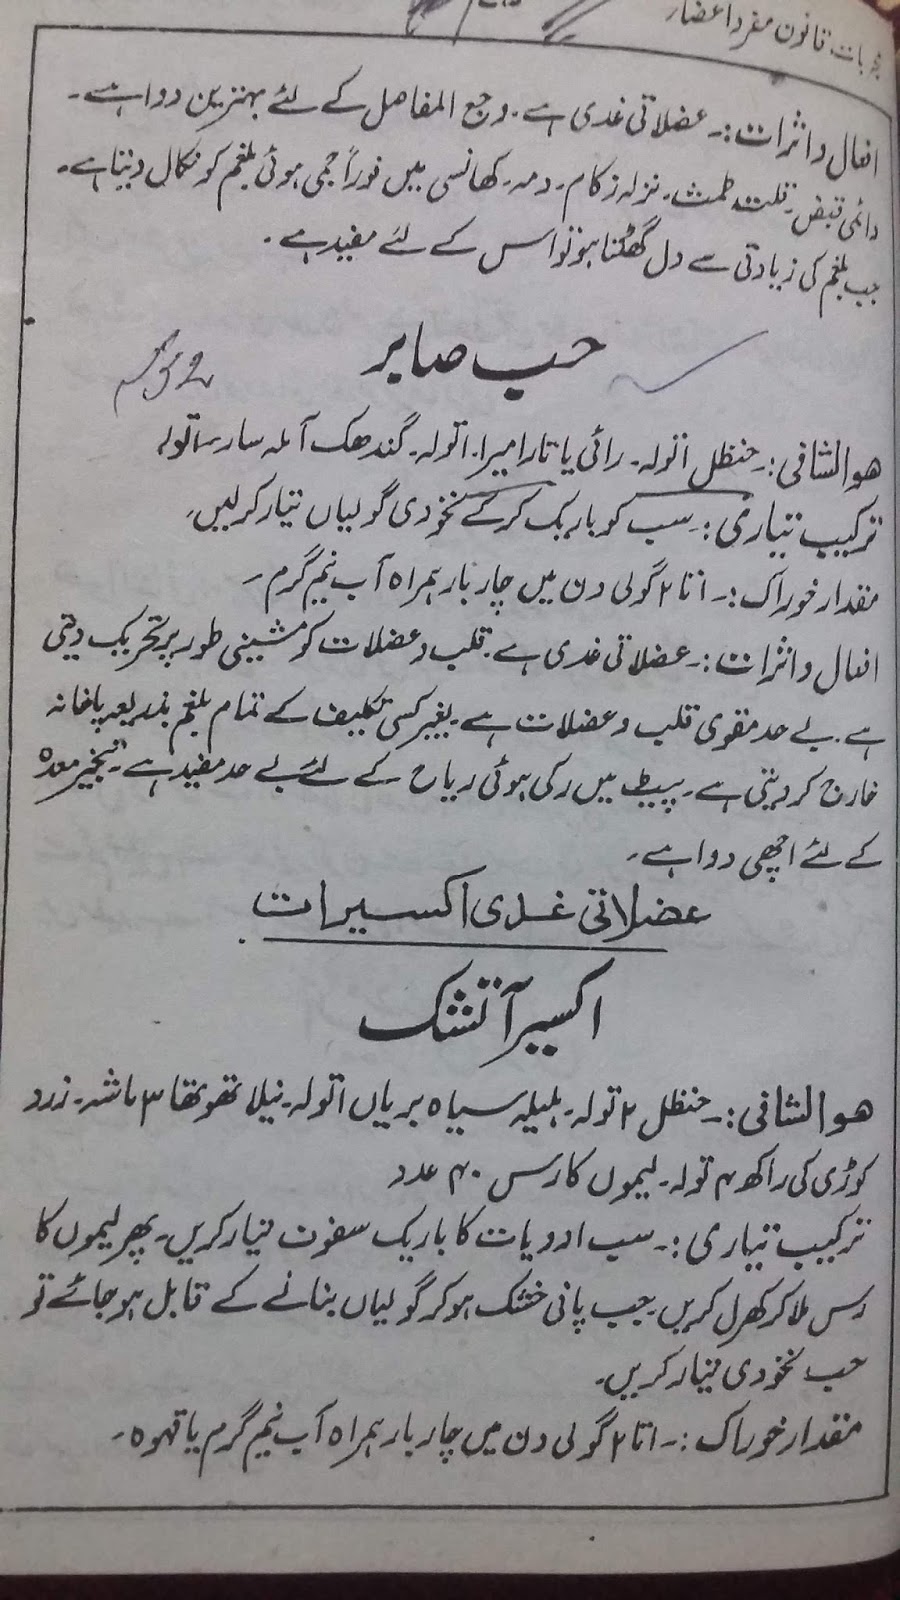 مجربات قانون مفرد اعضاء
افعال و اثرات :۔ عضلاتی غدی ہے۔ وجع المفاصل کے لئے بہترین دوا ہے۔
دائمی قبض۔ قلت طمث۔ نزلہ زکام۔ دمہ۔ کھانسی میں فوراً جمی ہوئی بلغم کو نکال دیتا ہے۔
جب بلغم کی زیادتی سے دل گھٹتا ہو تو اس کے لئے مفید ہے۔
حب صابر
ھوالشافی :۔ حنظل ۱تولہ۔ رائی یا تارا میرا ۱تولہ۔ گندھک آملہ سار ۱تولہ
ترکیب تیاری :۔ سب کو باریک کر کے نخودی گولیاں تیار کر لیں۔
مقدار خوراک :۔ ۱ تا ۲ گولی دن میں چار بار ہمراہ آب نیم گرم ۔
افعال و اثرات :۔ عضلاتی غدی ہے۔ قلب و عضلات کو مشینی طور پر تحریک دیتی
ہے۔ بے حد مقوی قلب و عضلات ہے۔ بغیر کسی تکلیف کے تمام بلغم بذریعہ پاخانہ
خارج کر دیتی ہے۔ پیٹ میں رکی ہوئی ریاح کے لئے بے حد مفید ہے۔ تبخیر معدہ
کے لئے اچھی دوا ہے۔
عضلاتی غدی اکسیرات
اکسیر آتشک
ھوالشافی :۔ حنظل ۲ تولہ۔ ہلیلہ سیاہ بریاں ۱تولہ۔ نیلا تھوتھا ۳ ماشہ۔ زرد
کوڑی کی راکھ ۴ تولہ۔ لیموں کا رس ۴۰ عدد
ترکیب تیاری :۔ سب ادویات کا باریک سفوف تیار کریں۔ پھر لیموں کا
رس ملا کر کھرل کریں جب پانی خشک ہو کر گولیاں بنانے کے قابل ہو جائے تو
حب نخودی تیار کریں۔
مقدار خوراک :۔ ۱ تا ۲ گولی دن میں چار بار ہمراہ آب نیم گرم یا قہوہ۔